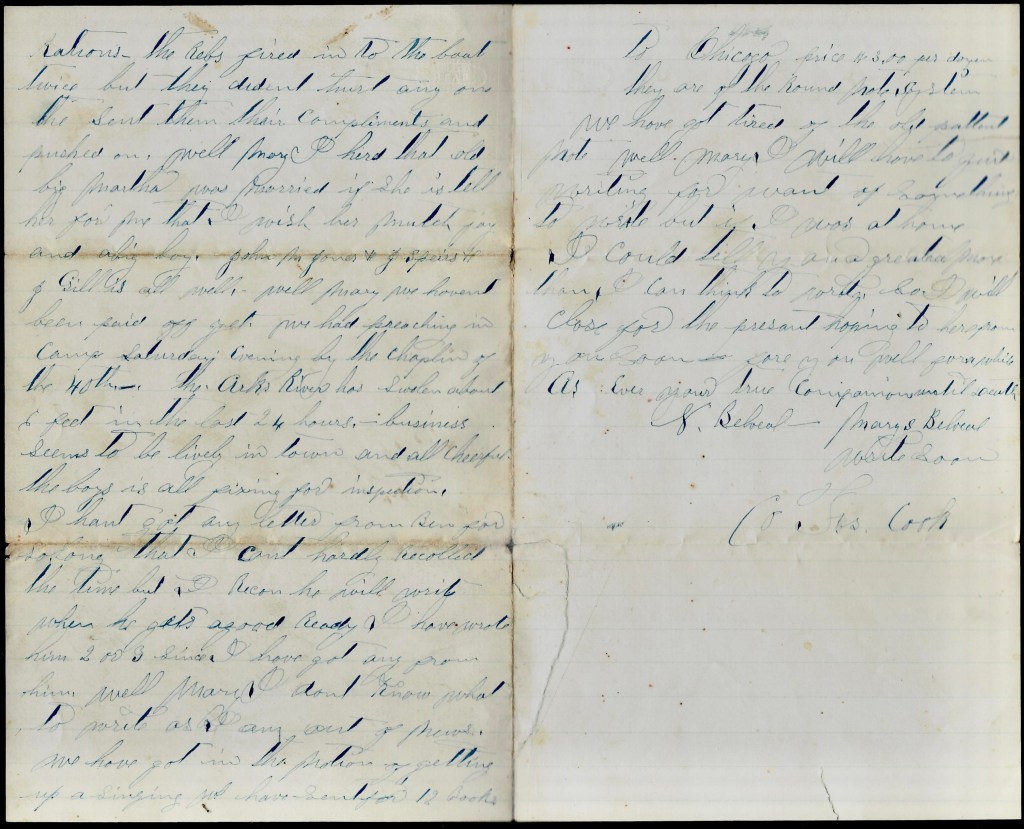 Rations the Rebs fired in to the boat
twice but they dident hurt any one
the sent them their Compliments and
pushed on. well Mary I herd that old
big Martha was married if she is tell
her for me that I wish her mutch joy
and a big boy. John M Jones & J Speirs &
J Gill is all well. well Mary we havent
been paid off yet. we had preaching in
Camp Saturday Evening by the Chaplin of
the 40th. the Arks River has Swolen about
feet in the last 24 hours. business
seems to be lively in town and all Cheerful
the boys is all fixing for inspection.
I hant got any letter from Ben for
so long that I cant hardly recollect
the time but I Recon he will write
when he gets a good Ready I have wrote
him 2 or 3 since I have got any from
him well Mary I dont Know what
to write as I am out of news.
we have got in the notion of getting
up a singing we have sent for 12 Books
to Chicago price $3,00 per dozen
they are of the Round note System
we have got tired of the old pattent
note well Mary I will have to quit
writing for want of something
to write but if I was at home
I Could tell you a greateal more
than I can think to write. So I will
Close for the present hoping to her from
you Soon fare you well for a while
As Ever your true Companion until death
N. Belveal Mary S Belveal
write Soon
Cook